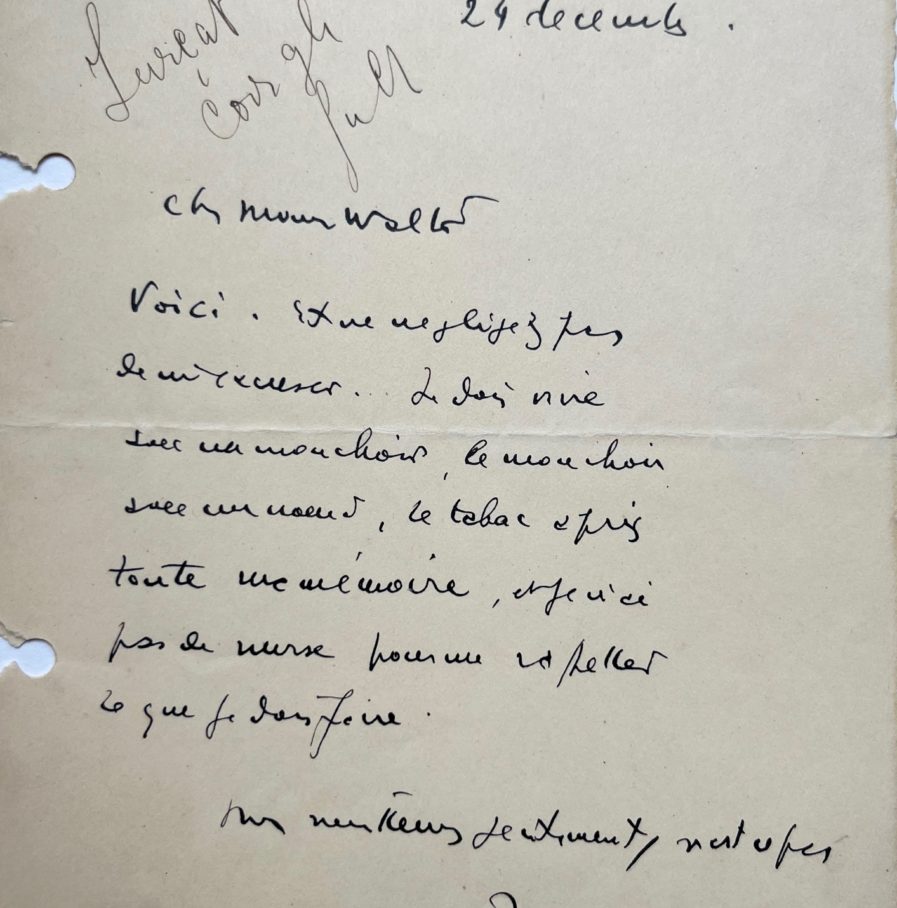 24 décembre.
Cher Monsieur Walter
Voici. Et ne negligez pas
de m'excuser... Je dois vivre
avec un mouchoir, le mouchoir
avec un nœud, le tabac a pris
toute ma mémoire, et je n'ai
pas de nurse pour me rappeller
ce que je dois faire.
Mes meilleurs sentiments, n'est ce pas